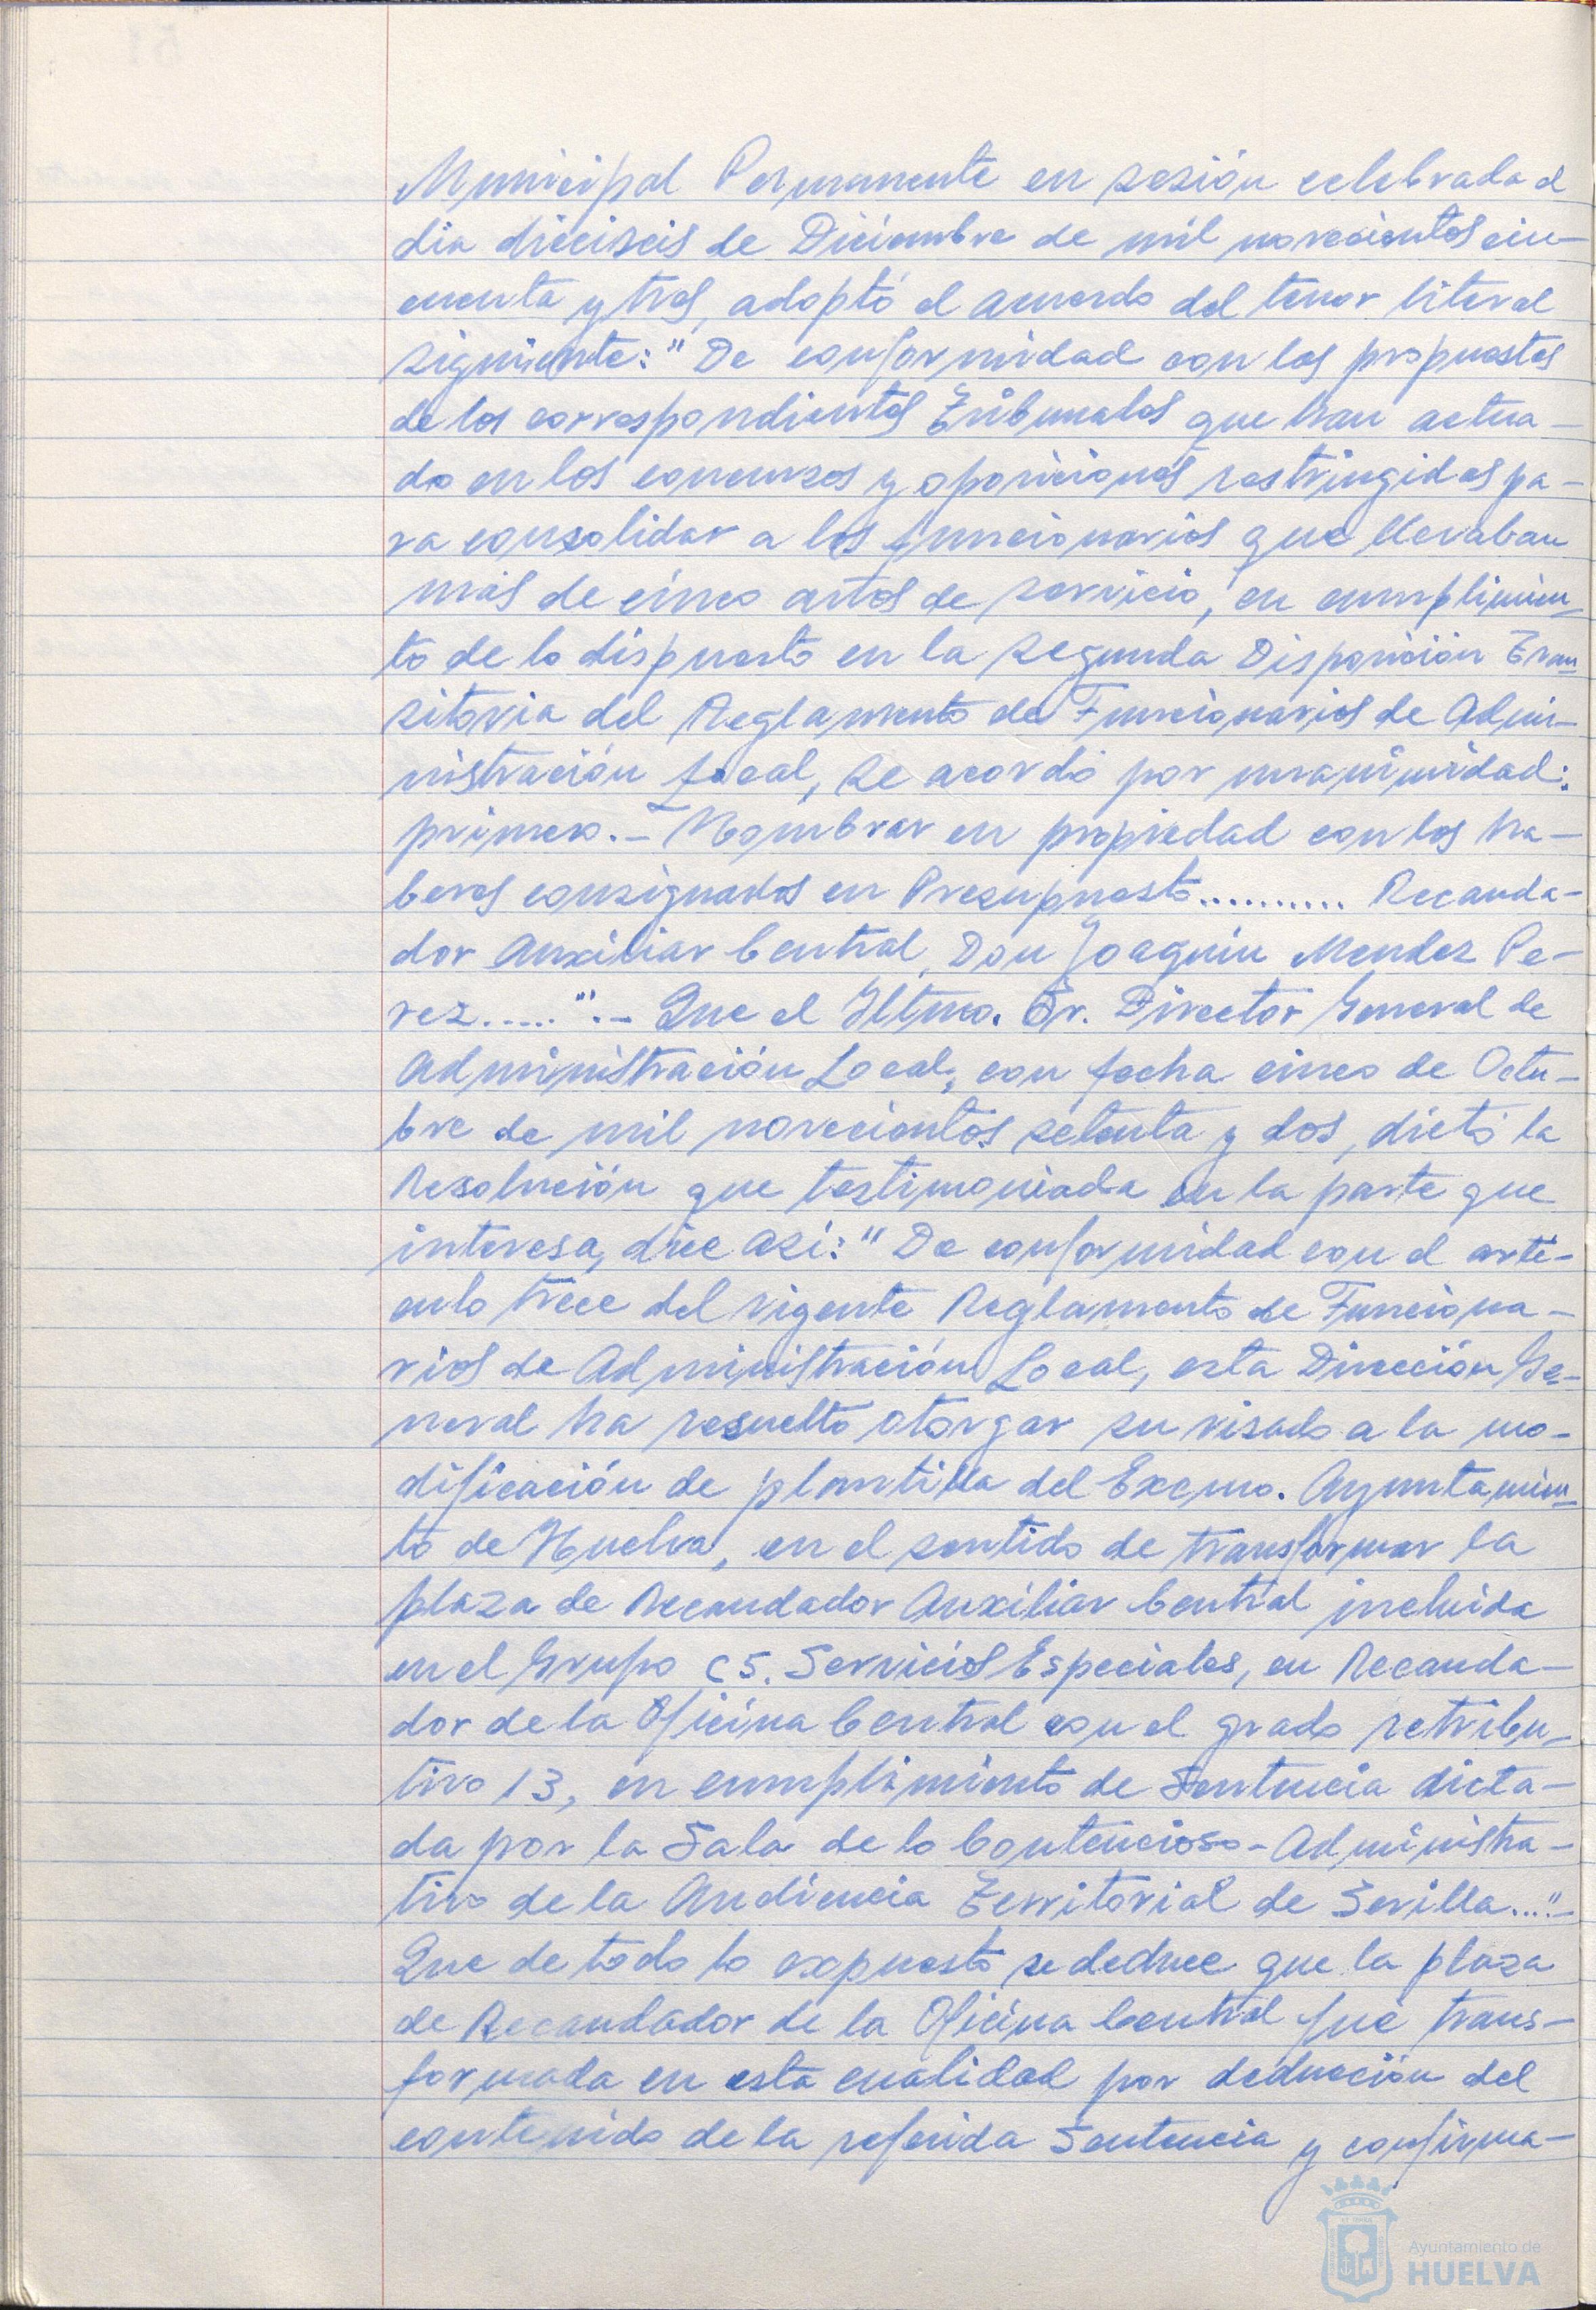 Municipal Permanente en sesión celebrada el
dia dieciseis de Diciembre de mil novecientos cin-
cuenta y tres, adoptó el acuerdo del tenor literal
siguiente: "De conformidad con las propuestas
de los correspondientes Tribunales que han actua-
do en los concursos y oposiciones restringidas pa-
ra consolidar a los funcionarios que llevaban
más de cinco años de servicio, en cumplimien-
to de lo dispuesto en la segunda Disposición Tran-
sitoria del Reglamento de Funcionarios de Admi-
nistración Local, se acordó por unanimidad:
primero.- Nombrar en propiedad con los ha-
beres consignados en Presupuesto.......... Recauda-
dor Auxiliar Central, Don Joaquin Mendez Pe-
rez.....".- Que el Iltmo. Sr. Director General de
Administración Local, con fecha cinco de Octu-
bre de mil novecientos setenta y dos, dictó la
Resolución que testimoniada en la parte que
interesa, dice asi: "De conformidad con el arti-
culo trece del vigente Reglamento de Funciona-
rios de Administración Local, esta Dirección Ge-
neral ha resuelto otorgar su visado a la mo-
dificación de plantilla del Excmo. Ayuntamien-
to de Huelva, en el sentido de transformar la
plaza de Recaudador Auxiliar Central incluida
en el Grupo C5. Servicios Especiales, en Recauda-
dor de la Oficina Central con el grado retribu-
tivo 13, en cumplimiento de Sentencia dicta-
da por la Sala de lo Contencioso-Administra-
tivo de la Audiencia Territorial de Sevilla..."-
Que de todo lo expuesto se deduce que la plaza
de Recaudador de la Oficina Central fué trans-
formada en esta cualidad por deducción del
contenido de la referida Sentencia y confirma-
Ayuntamiento de
HUELVA